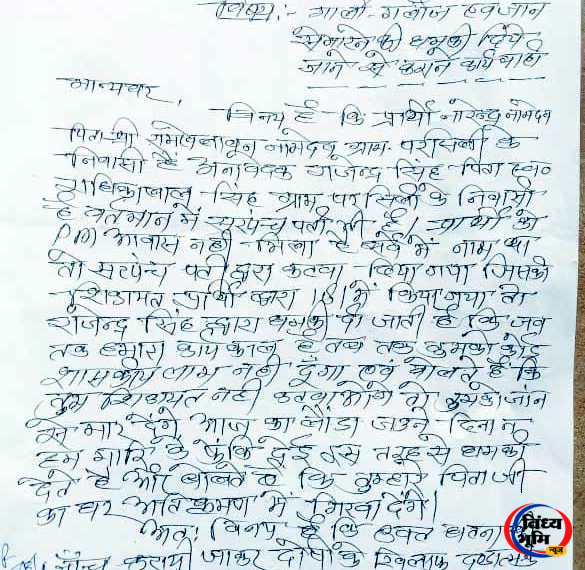 विषय:- गाली-गलौज एवं जान
से मारने की धमकी दिये
जाने से कराने कार्यवाही
मान्यवर,
विनय है कि प्रार्थी नरेन्द्र नामदेव
पिता श्री नामदेव ग्राम परसिली के
निवासी है अनावेदक राजेन्द्र सिंह पिता स्व०
सिंह ग्राम परसिली के निवासी
है वर्तमान में सरपंच पती भी है। प्रार्थी को
PM आवास नही मिला है सर्वे में नाम था
तो सरपंच पती द्वारा कटवा दिया गया जिसकी
शिकायत प्रार्थी द्वारा 181 में किया गया तो
राजेन्द्र सिंह द्वारा धमकी दी जाती है कि जब
तक हमारा कार्यकाल है तब तक तुमको कोई
शासकीय लाभ नही दूंगा एवं बोलते है कि
तुम शिकायत नही कटवाओगे तो तुमको जान
से मार देंगे आज का लौंडा जउने दिना न
हम गारि के फूंकि देई इस तरह से धमकी
देते है और बोलते है कि तुम्हारे पिता जी
का घर अतिक्रमण में गिरवा देंगे।
अतः विनय है कि उक्त घटना
जाँच करायी जाकर दोषी के खिलाफ दण्डात्मक
विंध्य
भूमि
न्यूज